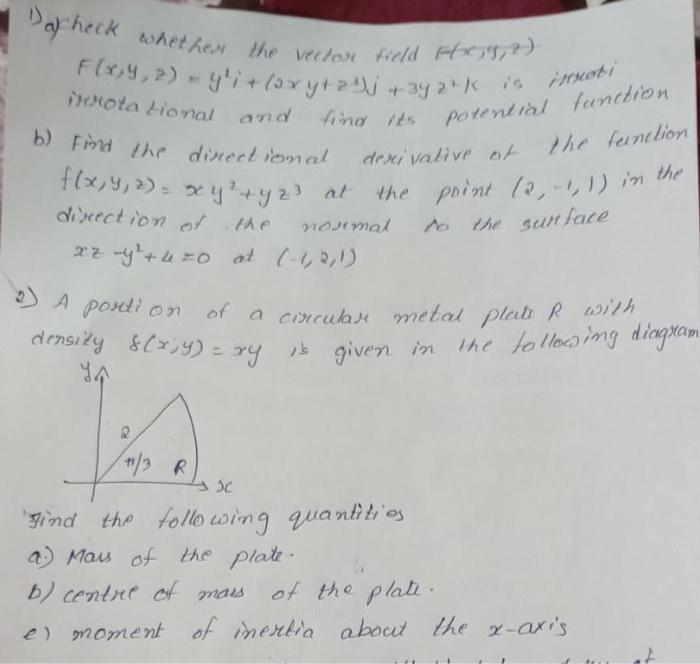 1) a) check whether the vector field F(x,y,z)
F(x,y,z) = y²i + (2xy+z³)j + 3yz²k is irroti
irrotational and find its potential function
b) Find the directional derivative of the function
f(x,y,z) = xy²+yz³ at the point (2,-1,1) in the
direction of the normal to the surface
xz -y²+4=0 at (-1,2,1)
2) A portion of a circular metal plate R with
density δ(x,y) = xy is given in the following diagram
y
2
π/3 R
x
Find the following quantities
a) Mass of the plate.
b) centre of mass of the plate.
c) moment of inertia about the x-axis